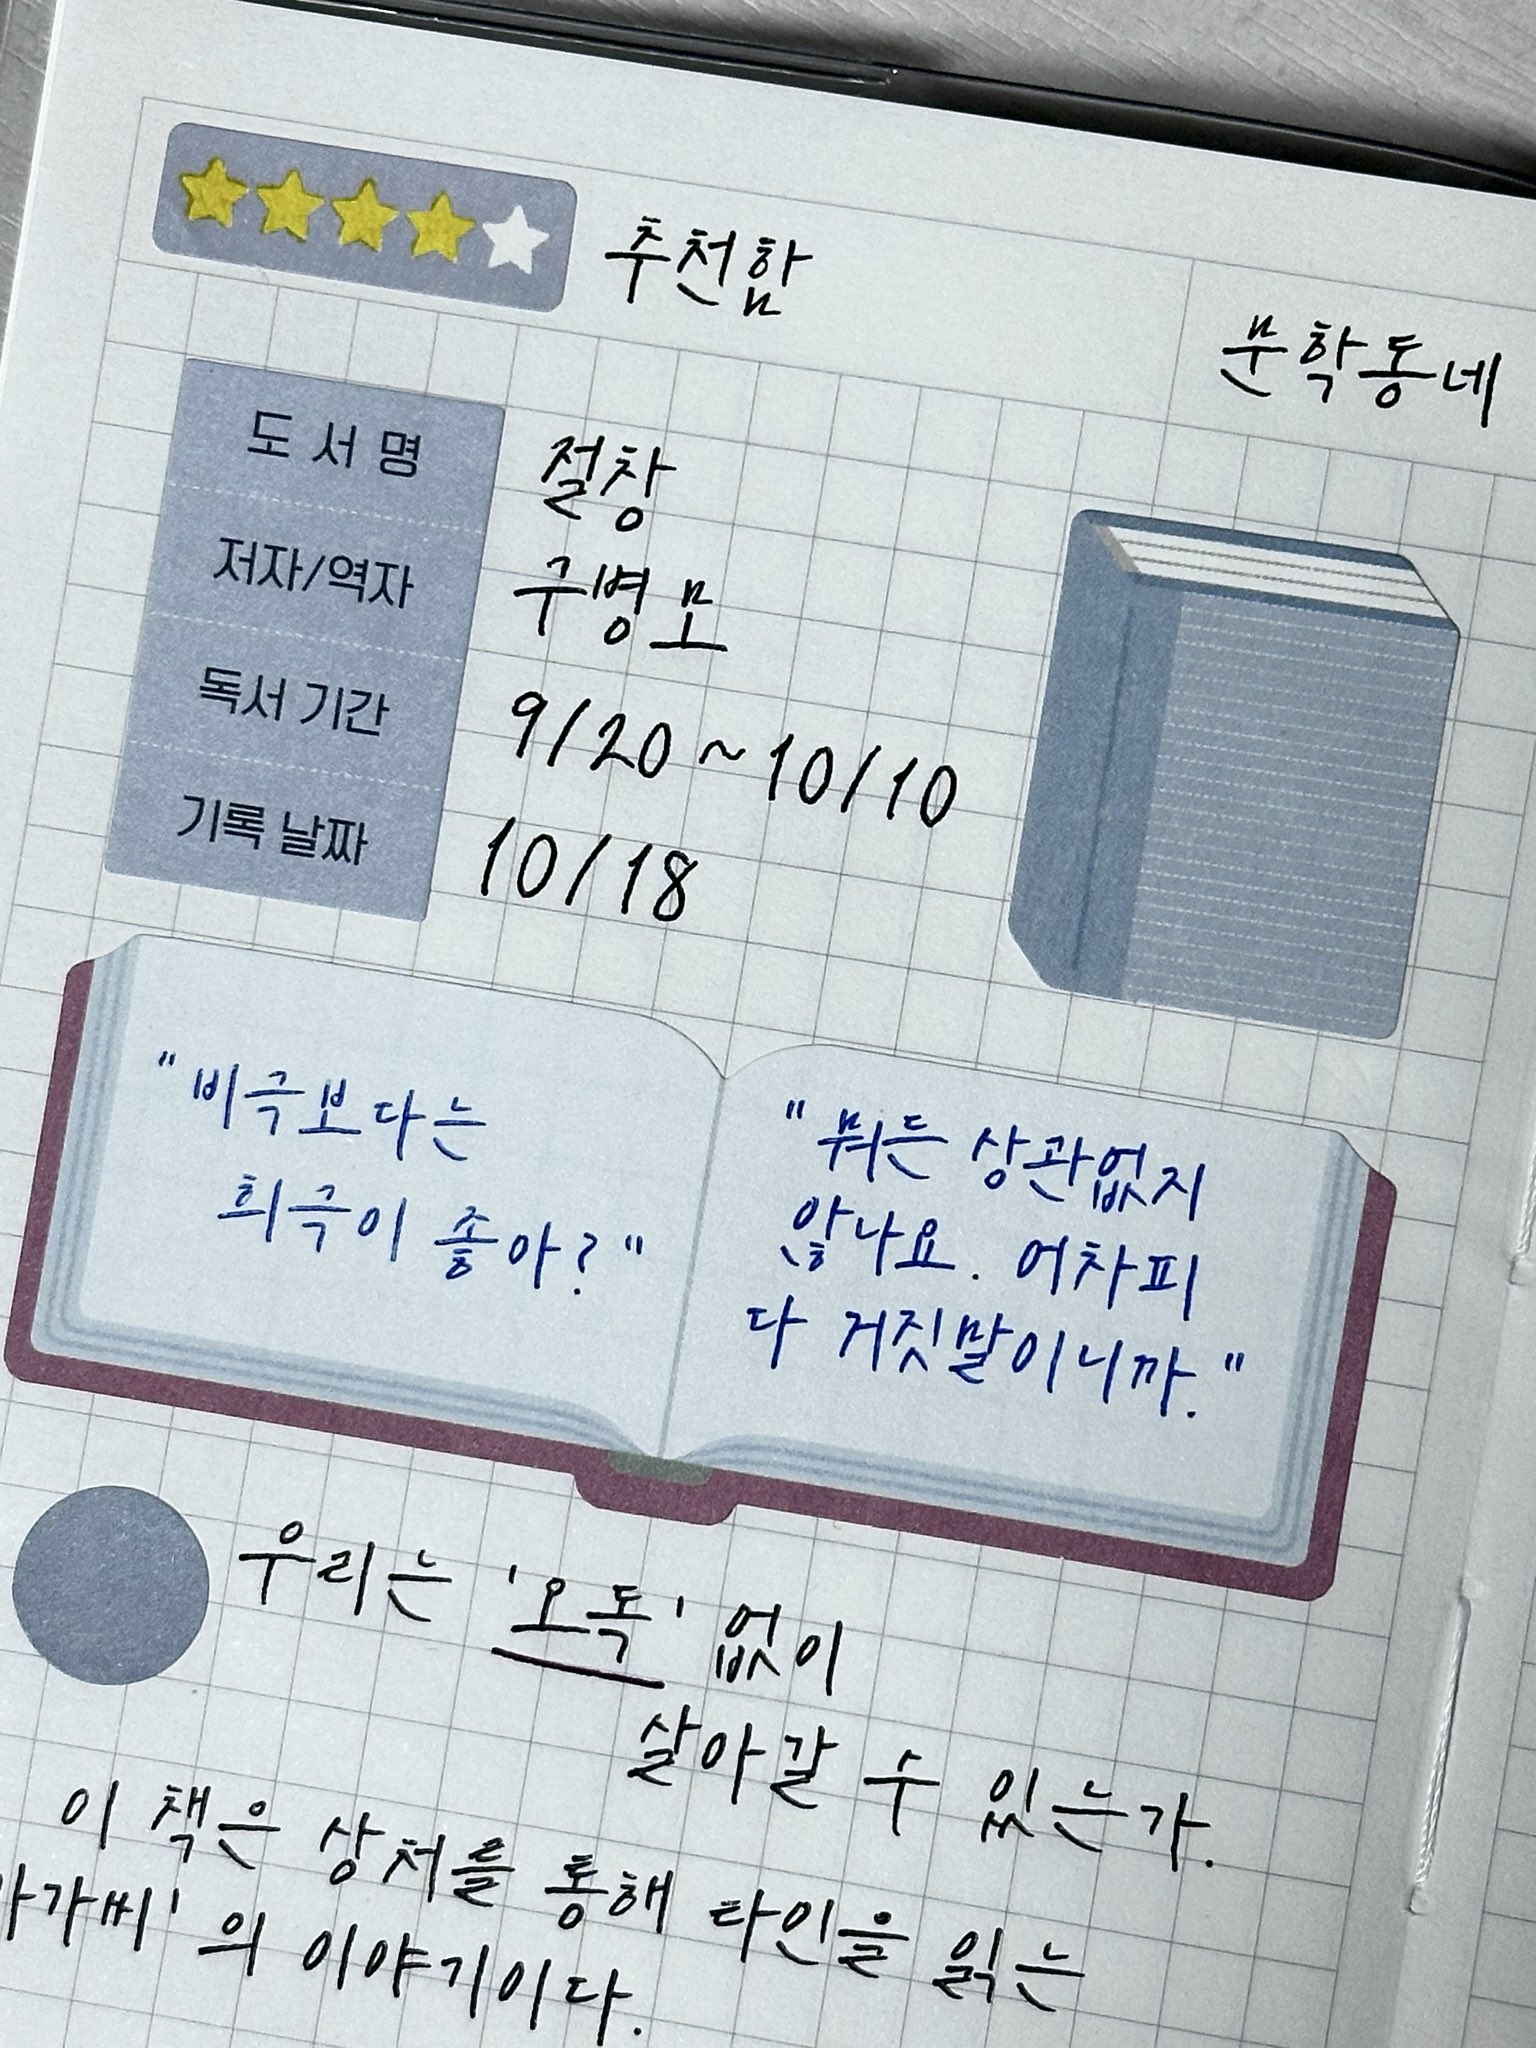 추천함
문학동네
도서명 절창
저자/역자 구병모
독서 기간 9/20 ~ 10/10
기록 날짜 10/18
"비극보다는
희극이 좋아?"
"뭐든 상관없지
않나요. 어차피
다 거짓말이니까."
우리는 '오독' 없이
살아갈 수 있는가.
이 책은 상처를 통해 타인을 읽는
아가씨'의 이야기이다.